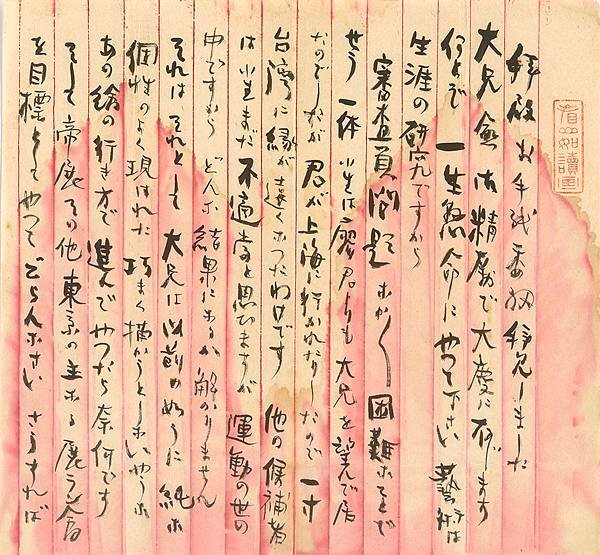 拝啓 お手紙委細拝見しました
大兄愈御精励で大慶に存じます
何よりで 一生懸命にやつて下さい 藝術は
生涯の研究ですから
審査員問題 なか〱困難なことで
せう 一体 小生は廖君よりも大兄を望んで居
たのでしたが 君が上海に行かれたりしたので 一寸
台湾に縁が遠くなつたわけです 他の候補者
は小生まだ不適当と思ひますが 運動の世の
中ですから どんな結果になるか解かりません
それはそれとして 大兄は以前のやうに純な
個性のよく現はれた 巧まく描かうとしないやうな
あの繪の行き方で進んでやつたら奈何です
そして帝展その他東京の主なる展らん会
を目標としてやつてごらんなさい さうすれば